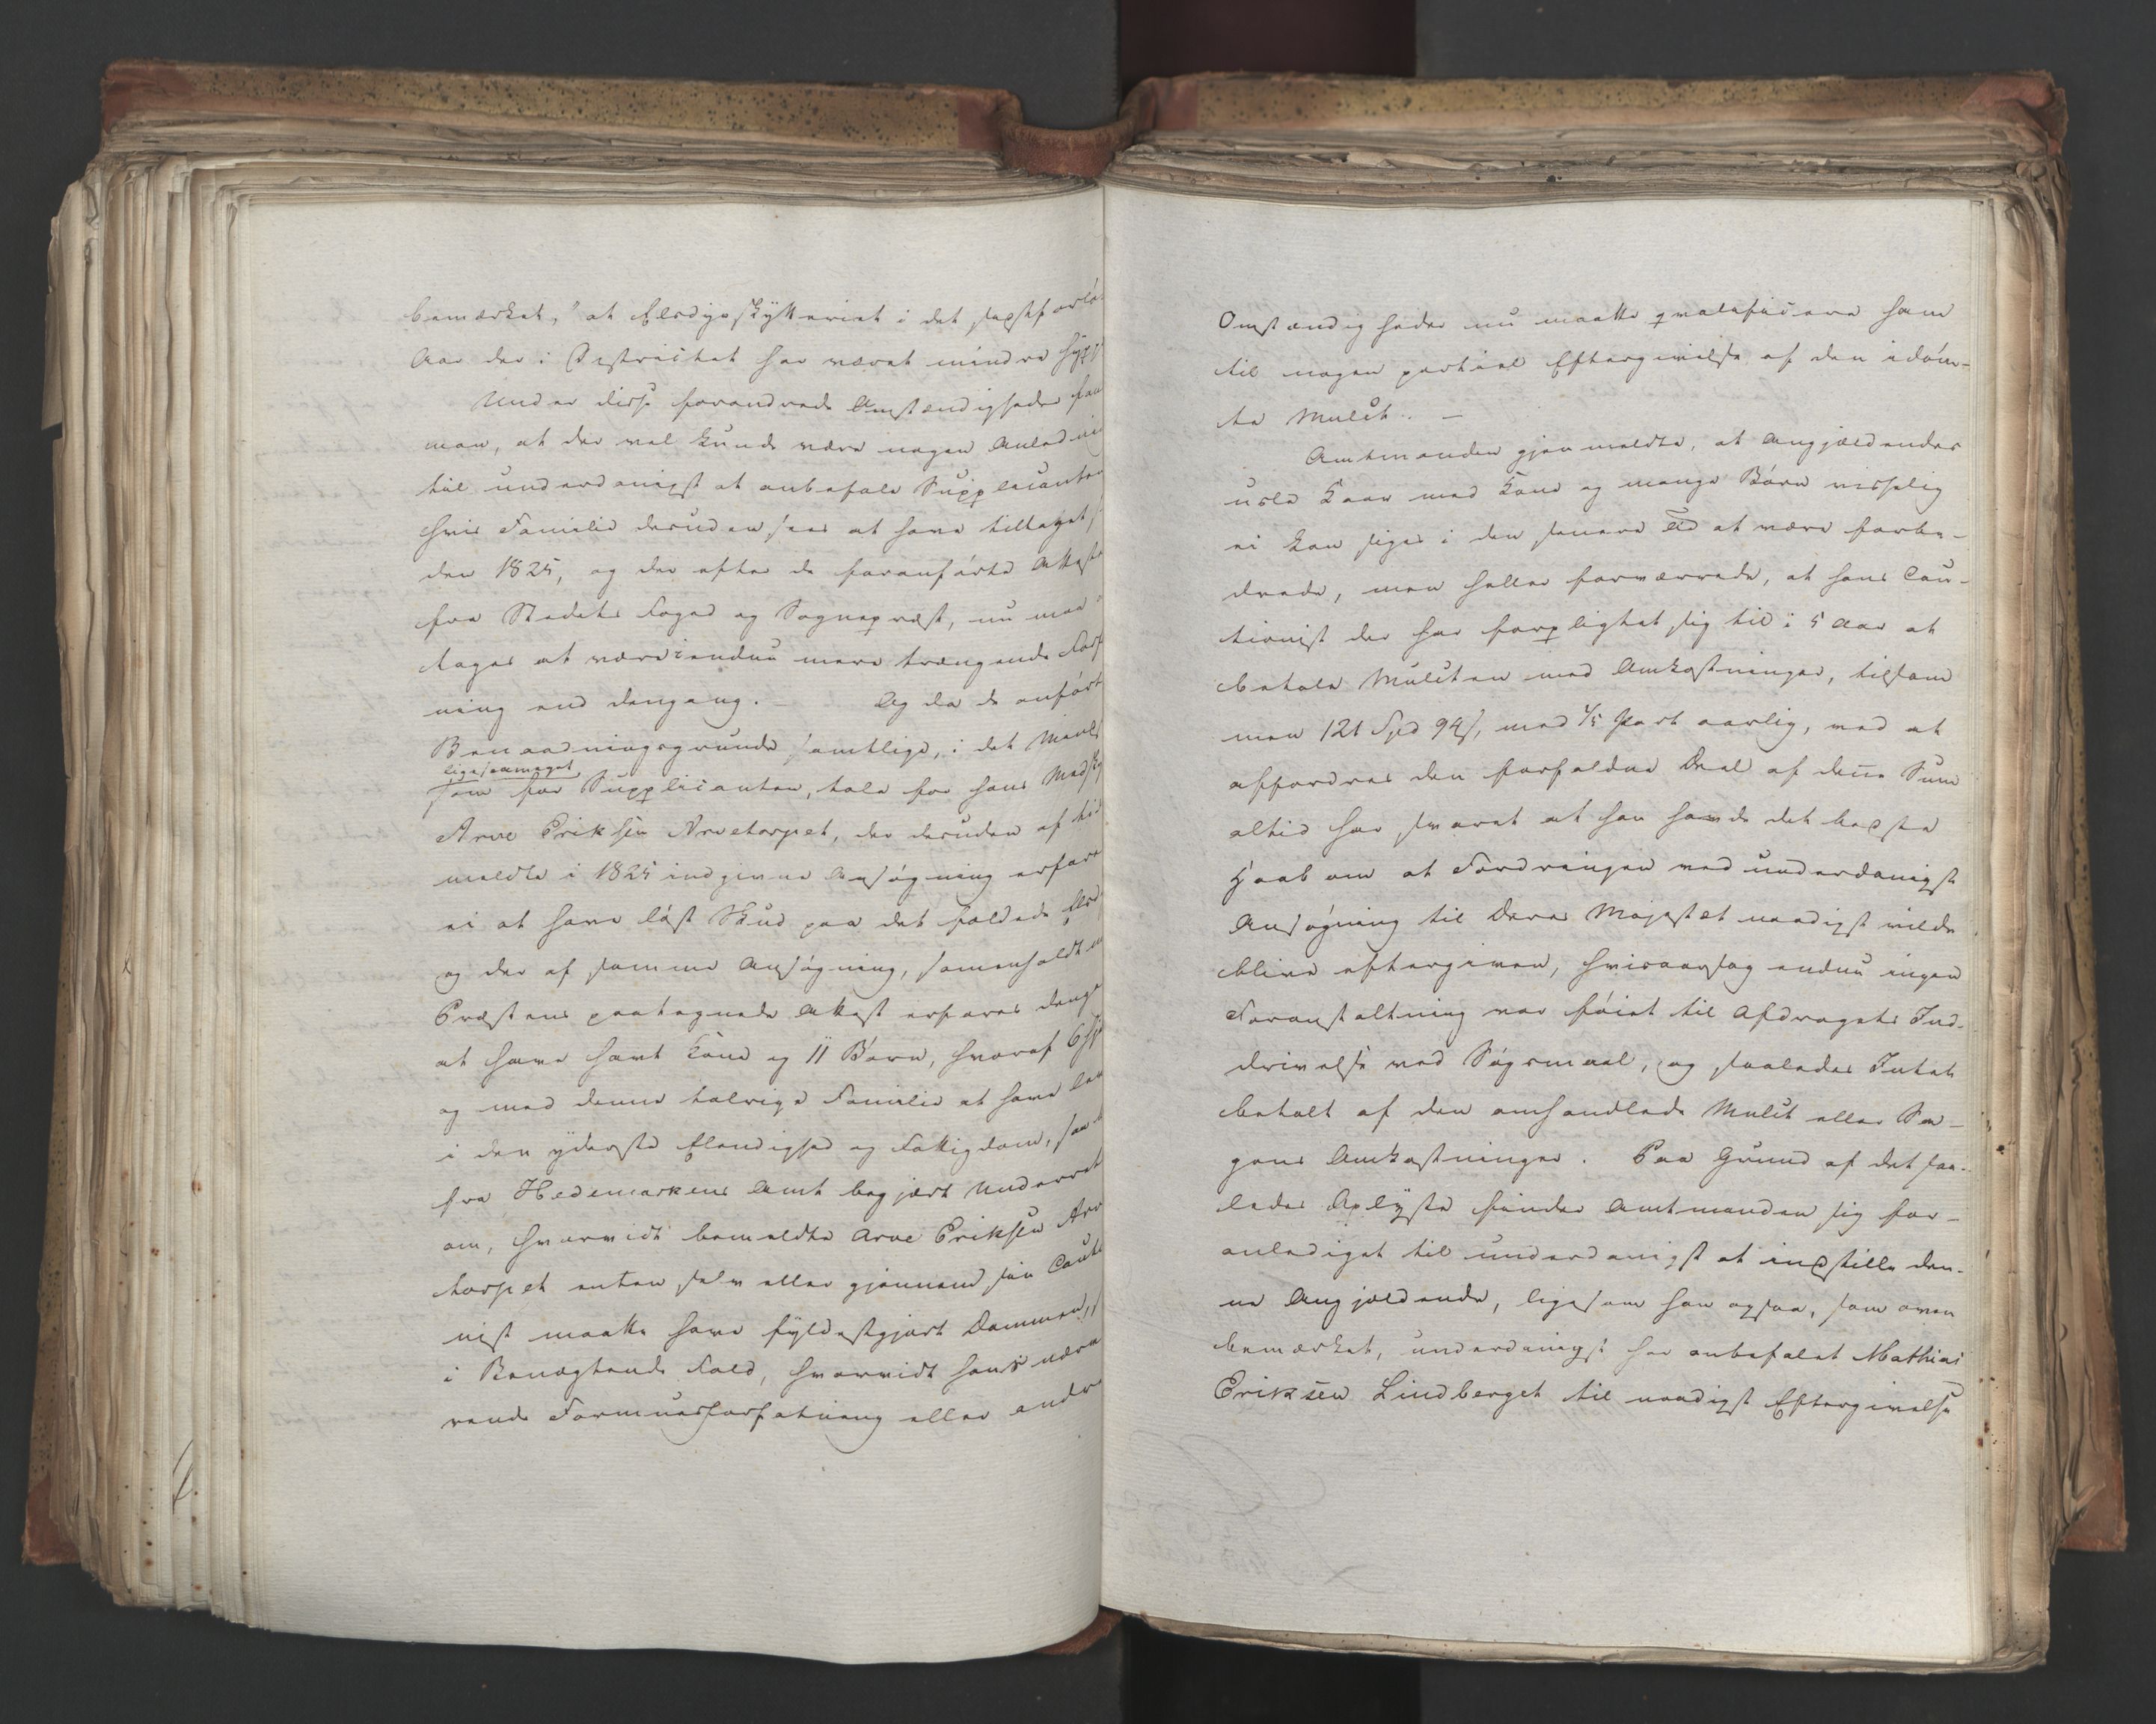 bemærket, "at Elsdyrskytteriet i det sidstforlø-
Aar der i Districtet har været mindre hypp
Under disse forandrede Omstændigheder fan
man, at der vel kunde være nogen Anledni
til underdanigst at anbefale Supplicanten
hvis Familie desuden sees at have tiltaget,
den 1825, og der efter de foranførte Attest
fra Stedets Foged og Sognepræst, nu maa
tages at være i endnu mere trængende Forf
ning end dengang. — Og da de anført
Benaadningsgrunde samtlige, i det Minds
ligesaameget
som for Supplicanten, tale for hans Medsky
Arve Eriksen Arvetorpet, der desuden af tid
meldte i 1825 indgivne Ansøgning erfare
ei at have løst Skud paa det fældede Elsd
og der af samme Ansøgning, samenholdt m
Præstens paategnede Attest erfares denga
at have havt Kone og 11 Børn, hvoraf 6
og med denne talrige Familie at have lev
i den yderste Elendighed og Fattigdom, saa
fra Hedemarkens Amt begjært Underret
om, hvorvidt bemeldte Arve Eriksen Arv
torpet enten selv eller gjennem sin Cauti
nist maatte have fyldestgjort Dommen,
i Benægtende Fald, hvorvidt hans nærvæ
rende Formuesforfatning eller andre
Omstændigheder nu maatte qvalificere ham
til nogen partiel Eftergivelse af den idøm-
te Mulct. —
Amtmanden gjenmeldte, at Angjældendes
usle Kaar med Kone og mange Børn visselig
ei kan siges i den senere Tid at være forbe-
drede, men heller forværrede, at hans Cau-
tionist der har forpligtet sig til i 5 Aar at
betale Mulcten med Omkostninger, tilsam
men 121 Spd 94 s, med 1/5 Part aarlig, ved at
affordres den forfaldne Deel af denne Sum
altid har svaret at han havde det bedste
Haab om at Fordringen ved underdanigst
Ansøgning til Deres Majestet naadigst vilde
blive eftergiven, hvisaarsag endnu ingen
Foranstaltning var føiet til Afdragets Ind-
drivelse ved Søgsmaal, og saaledes Intet
betalt af den omhandlede Mulct eller Sa-
gens Omkostninger. Paa Grund af det saa-
ledes Oplyste finder Amtmanden sig for-
anlediget til underdanigst at indstille den-
ne Angjældende, ligesom han ogsaa, som oven
bemærket, underdanigst har anbefalet Mathias
Eriksen Lindberget til naadigst Eftergivelse